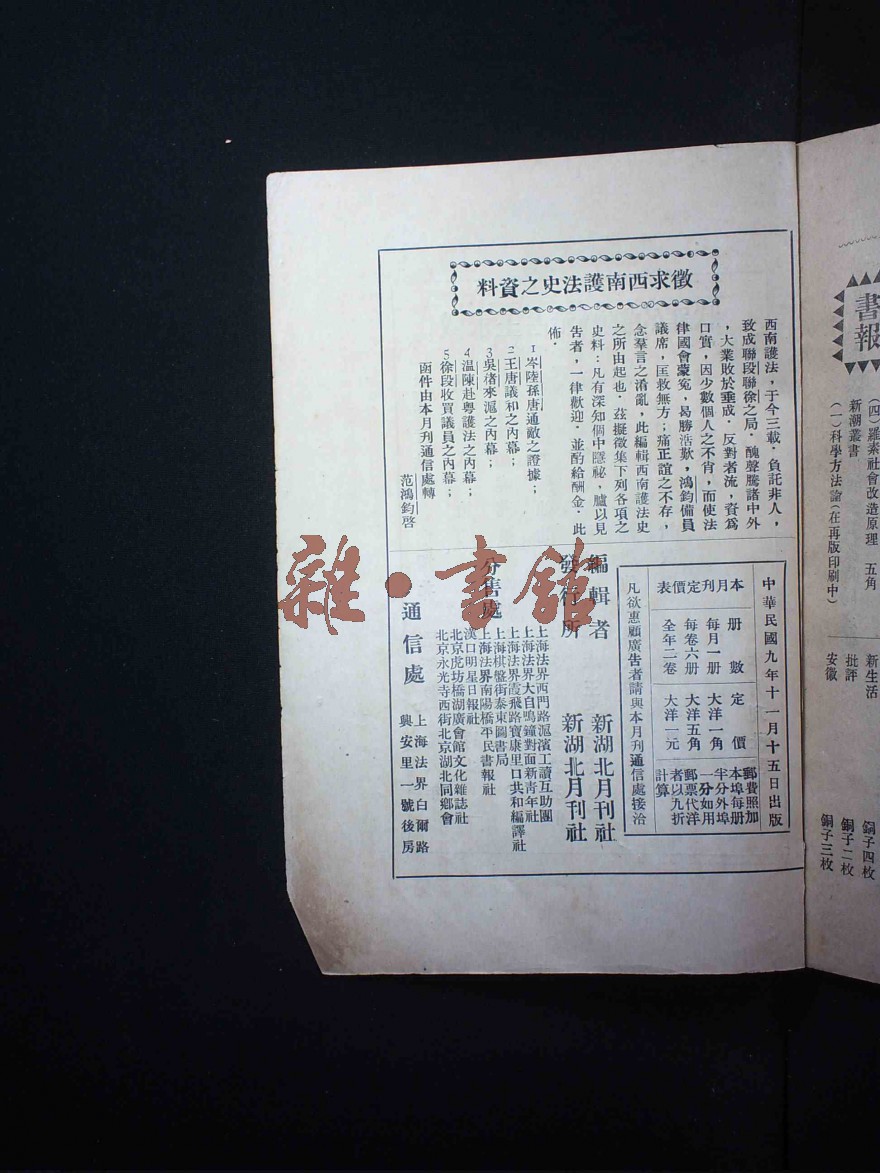 書報
(四)羅素社會改造原理　五角
新潮叢書
(一)科學方法論(在再版印刷中)
新生活
批評
安徽
銅子四枚
銅子二枚
銅子三枚
徵求西南護法史之資料
西南護法，于今三載．負託非人，
致成聯段聯徐之局．醜聲騰諸中外
，大業敗於垂成．反對者流，資為
口實，因少數個人之不肖，而使法
律國會蒙冤，曷勝浩歎，鴻鈞備員
議席，匡救無方；痛正誼之不存，
念羣言之淆亂，此編輯西南護法史
之所由起也．茲擬徵集下列各項之
史料：凡有深知個中隱祕，臚以見
告者，一律歡迎．並酌給酬金．此
佈．
1岑陸孫唐通敵之證據；
2王唐議和之內幕；
3吳褚來滬之內幕；
4温陳赴粵護法之內幕；
5徐段收買議員之內幕；
函件由本月刊通信處轉
范鴻鈞啓
中華民國九年十一月十五日出版
本月刊定價表
册數　定價
每月一册　大洋一角
每卷六册　大洋五角
全年二卷　大洋一元
郵費照加
本埠每册
半分外埠
一分如用
郵票代洋
者以九折
計算
凡欲惠顧廣告者請與本月刊通信處接洽
編輯者　新湖北月刊社
發行所　新湖北月刊社
分售處
上海法界西門路滬濱工讀互助團
上海法界大自鳴鐘對面新青年社
上海法界霞飛路寶康里口共和編譯社
上海棋盤街泰東圖書局
上海法界南陽橋平民書報社
漢口明星日報社
北京虎坊橋湖廣會館文化雜誌社
北京永光寺西街北京湖北同鄉會
通信處
上海法界白爾路
興安里一號後房
雜・書館